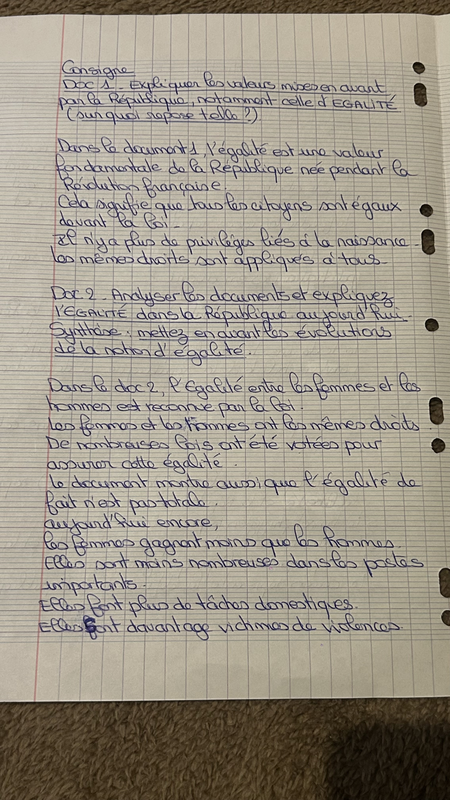 Consigne
Doc 1 - Expliquer les valeurs mises en avant
par la République, notamment celle d'EGALITÉ
(sur quoi repose t elle ?)
Dans le document 1, l'égalité est une valeur
fondamentale de la République née pendant la
Révolution française.
Cela signifie que tous les citoyens sont égaux
devant la loi.
Il n'y a plus de privilèges liés à la naissance.
les mêmes droits sont appliqués à tous.
Doc 2 - Analyser les documents et expliquez
l'EGALITÉ dans la République aujourd'hui.
Synthèse : mettez en avant les évolutions
de la notion d'égalité.
Dans le doc 2, l'égalité entre les femmes et les
hommes est reconnue par la loi.
les femmes et les hommes ont les mêmes droits.
De nombreuses lois ont été votées pour
assurer cette égalité.
le document montre aussi que l'égalité de
fait n'est pas totale.
aujourd'hui encore,
les femmes gagnent moins que les hommes.
Elles sont moins nombreuses dans les postes
importants.
Elles font plus de tâches domestiques.
Elles sont davantage victimes de violences.